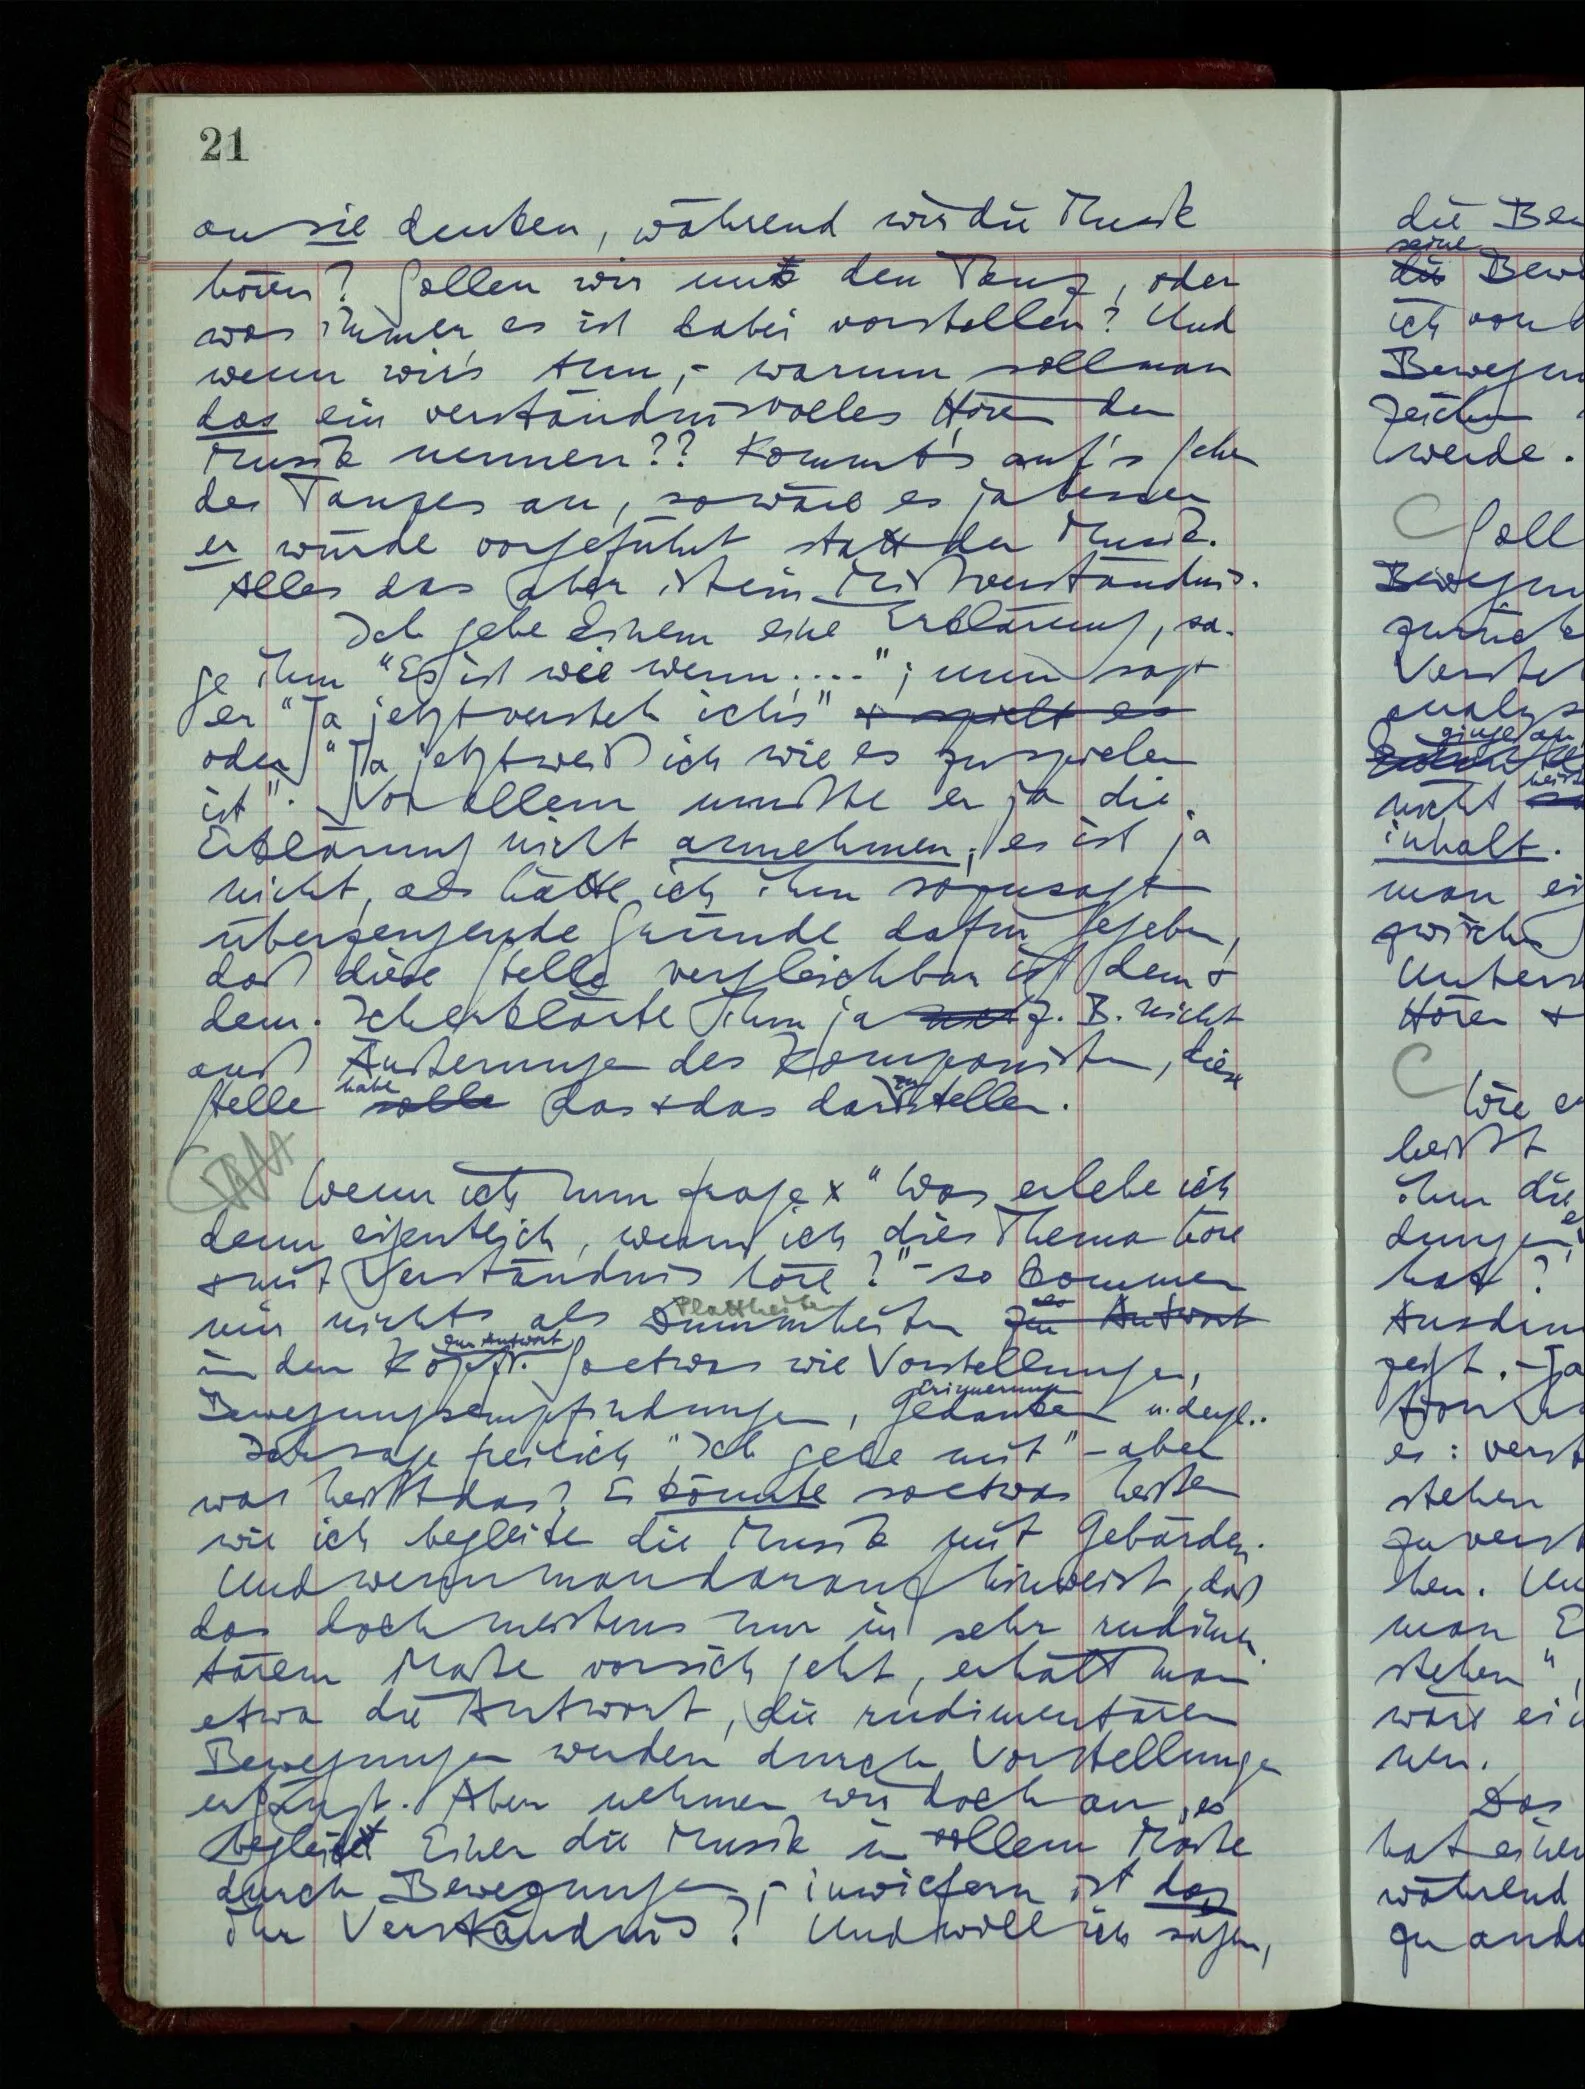 21
an sie denken, während wir die Musik
hören? Sollen wir uns den Tanz, oder
was immer es ist dabei vorstellen? Und
wenn wir's tun, – warum soll man
das ein verständnisvolles Hören der
Musik nennen?? Kommt's auf's Sehen
des Tanzes an, so wäre es ja besser
er würde vorgeführt statt der Musik.
Alles das aber ist ein Mißverständnis.
Ich gebe Einem eine Erklärung, sa-
ge ihm "Es ist wie wenn ...."; nun sagt
er "Ja jetzt versteh ich's" + spielt es
oder "Ja jetzt weiß ich wie es zu spielen
ist". Vor allem mußte er ja die
Erklärung nicht annehmen; es ist ja
nicht, als hätte ich ihm sozusagen
überzeugende Gründe dafür gegeben,
daß diese Stelle vergleichbar ist dem +
dem. Ich erklärte ihm ja z. B. nicht
aus Äußerungen des Komponisten, diese
habe zu
Stelle solle das + das darstellen.
Wenn ich nun frage x "Was erlebe ich
denn eigentlich, wenn ich dies Thema höre
+ mit Verständnis höre?" – so kommen
Plattheiten als
mir nichts als Dummheiten zur Antwort
zur Antwort
in den Kopf. So etwas wie Vorstellungen,
Erinnerungen
Bewegungsempfindungen, Gedanken u. dergl..
Ich sage freilich "Ich gehe mit" – aber
was heißt das? Es könnte so etwas heißen
wie ich begleite die Musik mit Gebärden.
Und wenn man darauf hinweist, daß
das doch meistens nur in sehr rudimen-
tärem Maße vor sich geht, erhält man
etwa die Antwort, die rudimentären
Bewegungen werden durch Vorstellungen
ergänzt. Aber nehmen wir doch an, es
begleitet Einer die Musik in vollem Maße
durch Bewegungen, – inwiefern ist das
ihr Verständnis? Und will ich sagen,
die Bew
seine
die Bew
ich von
Bewegun
Zeichen
werde.
Soll
Bewegun
zurück
Verste
analys
ginge an
nicht
inhalt.
man ei
zwischen
Unters
Hören +
Wie e
heißt
ihm die
dungen
hat?
Ausdru
zeigt. – Ja
es: verst
stehen
zu verst
hen. Un
man E
stehen",
wäre ei
nen.
Das
hat einen
während
zu ande